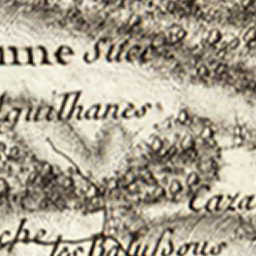 nne Succ
Aguilhanes
Caza
che
les Baussous